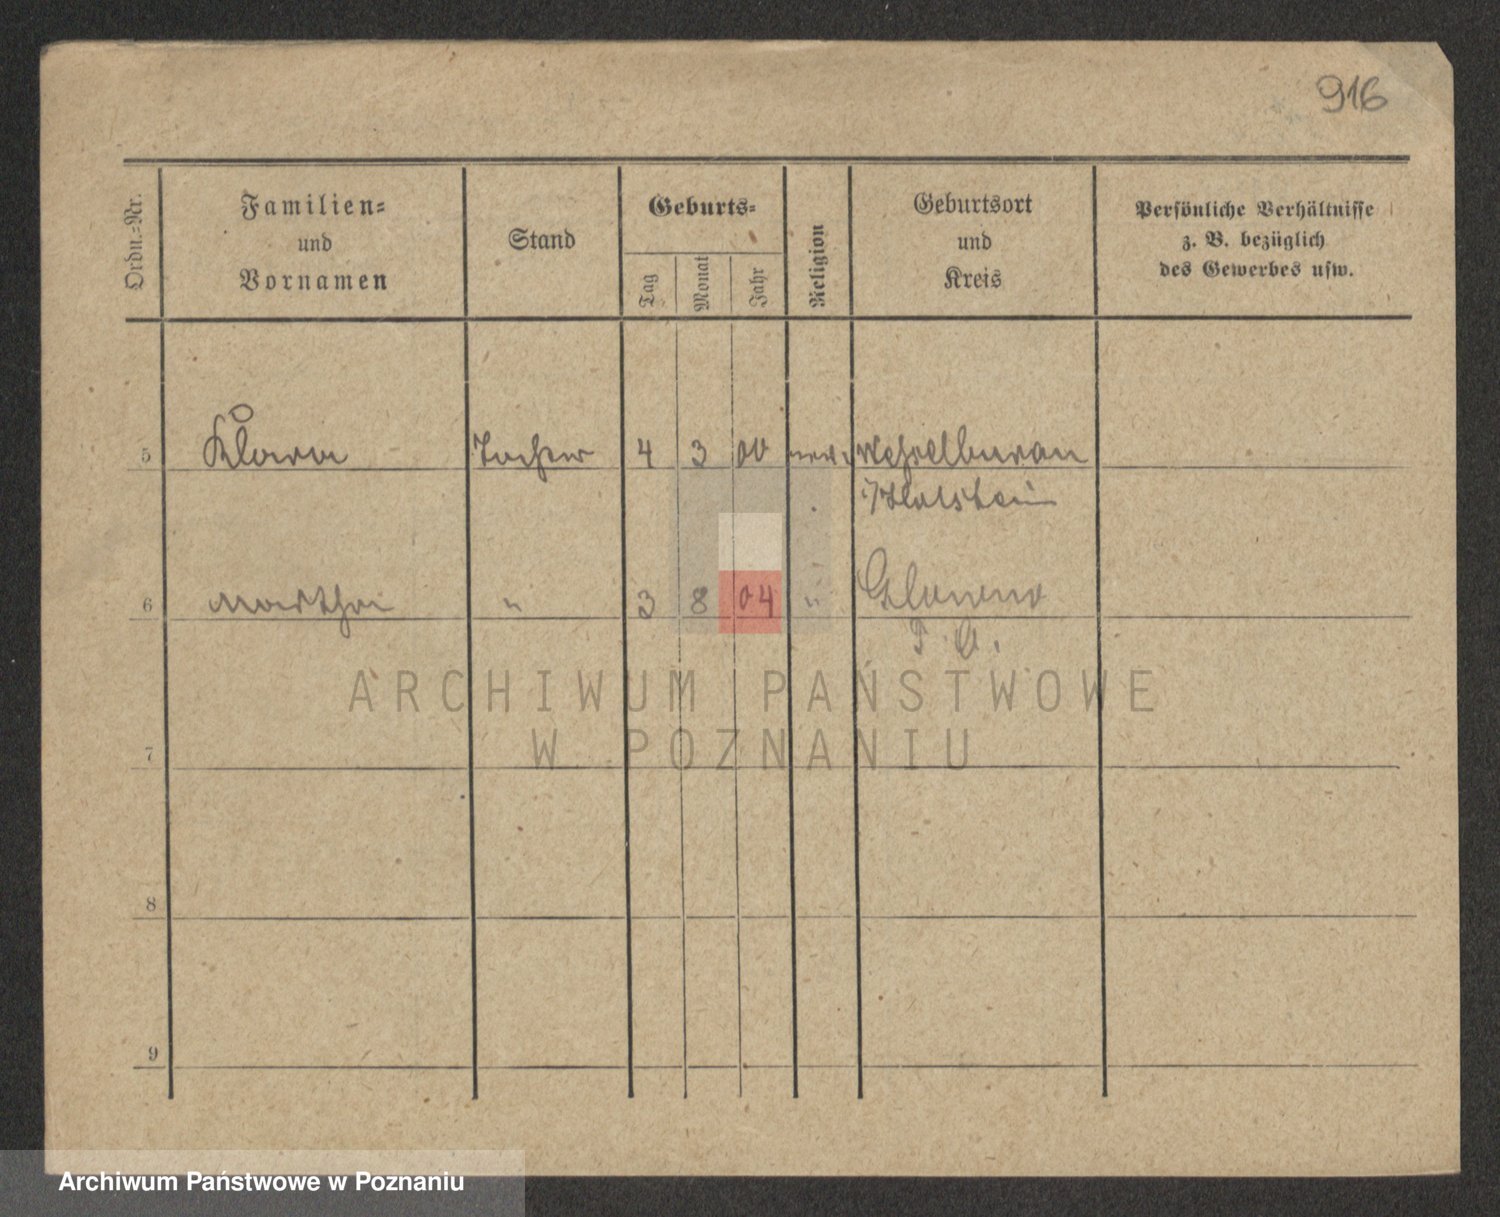 916
Ordn.-Nr.
Familien-
und
Vornamen
Stand
Geburts-
Tag
Monat
Jahr
Religion
Geburtsort
und
Kreis
Persönliche Verhältnisse
z. B. bezüglich
des Gewerbes usw.
5 Klara Tochter 4 3 00 Wesselburen
i/Holstein
6 Martha " 3 8 04 "
P. O.
ARCHIWUM PAŃSTWOWE
W POZNANIU
7
8
9
Archiwum Państwowe w Poznaniu